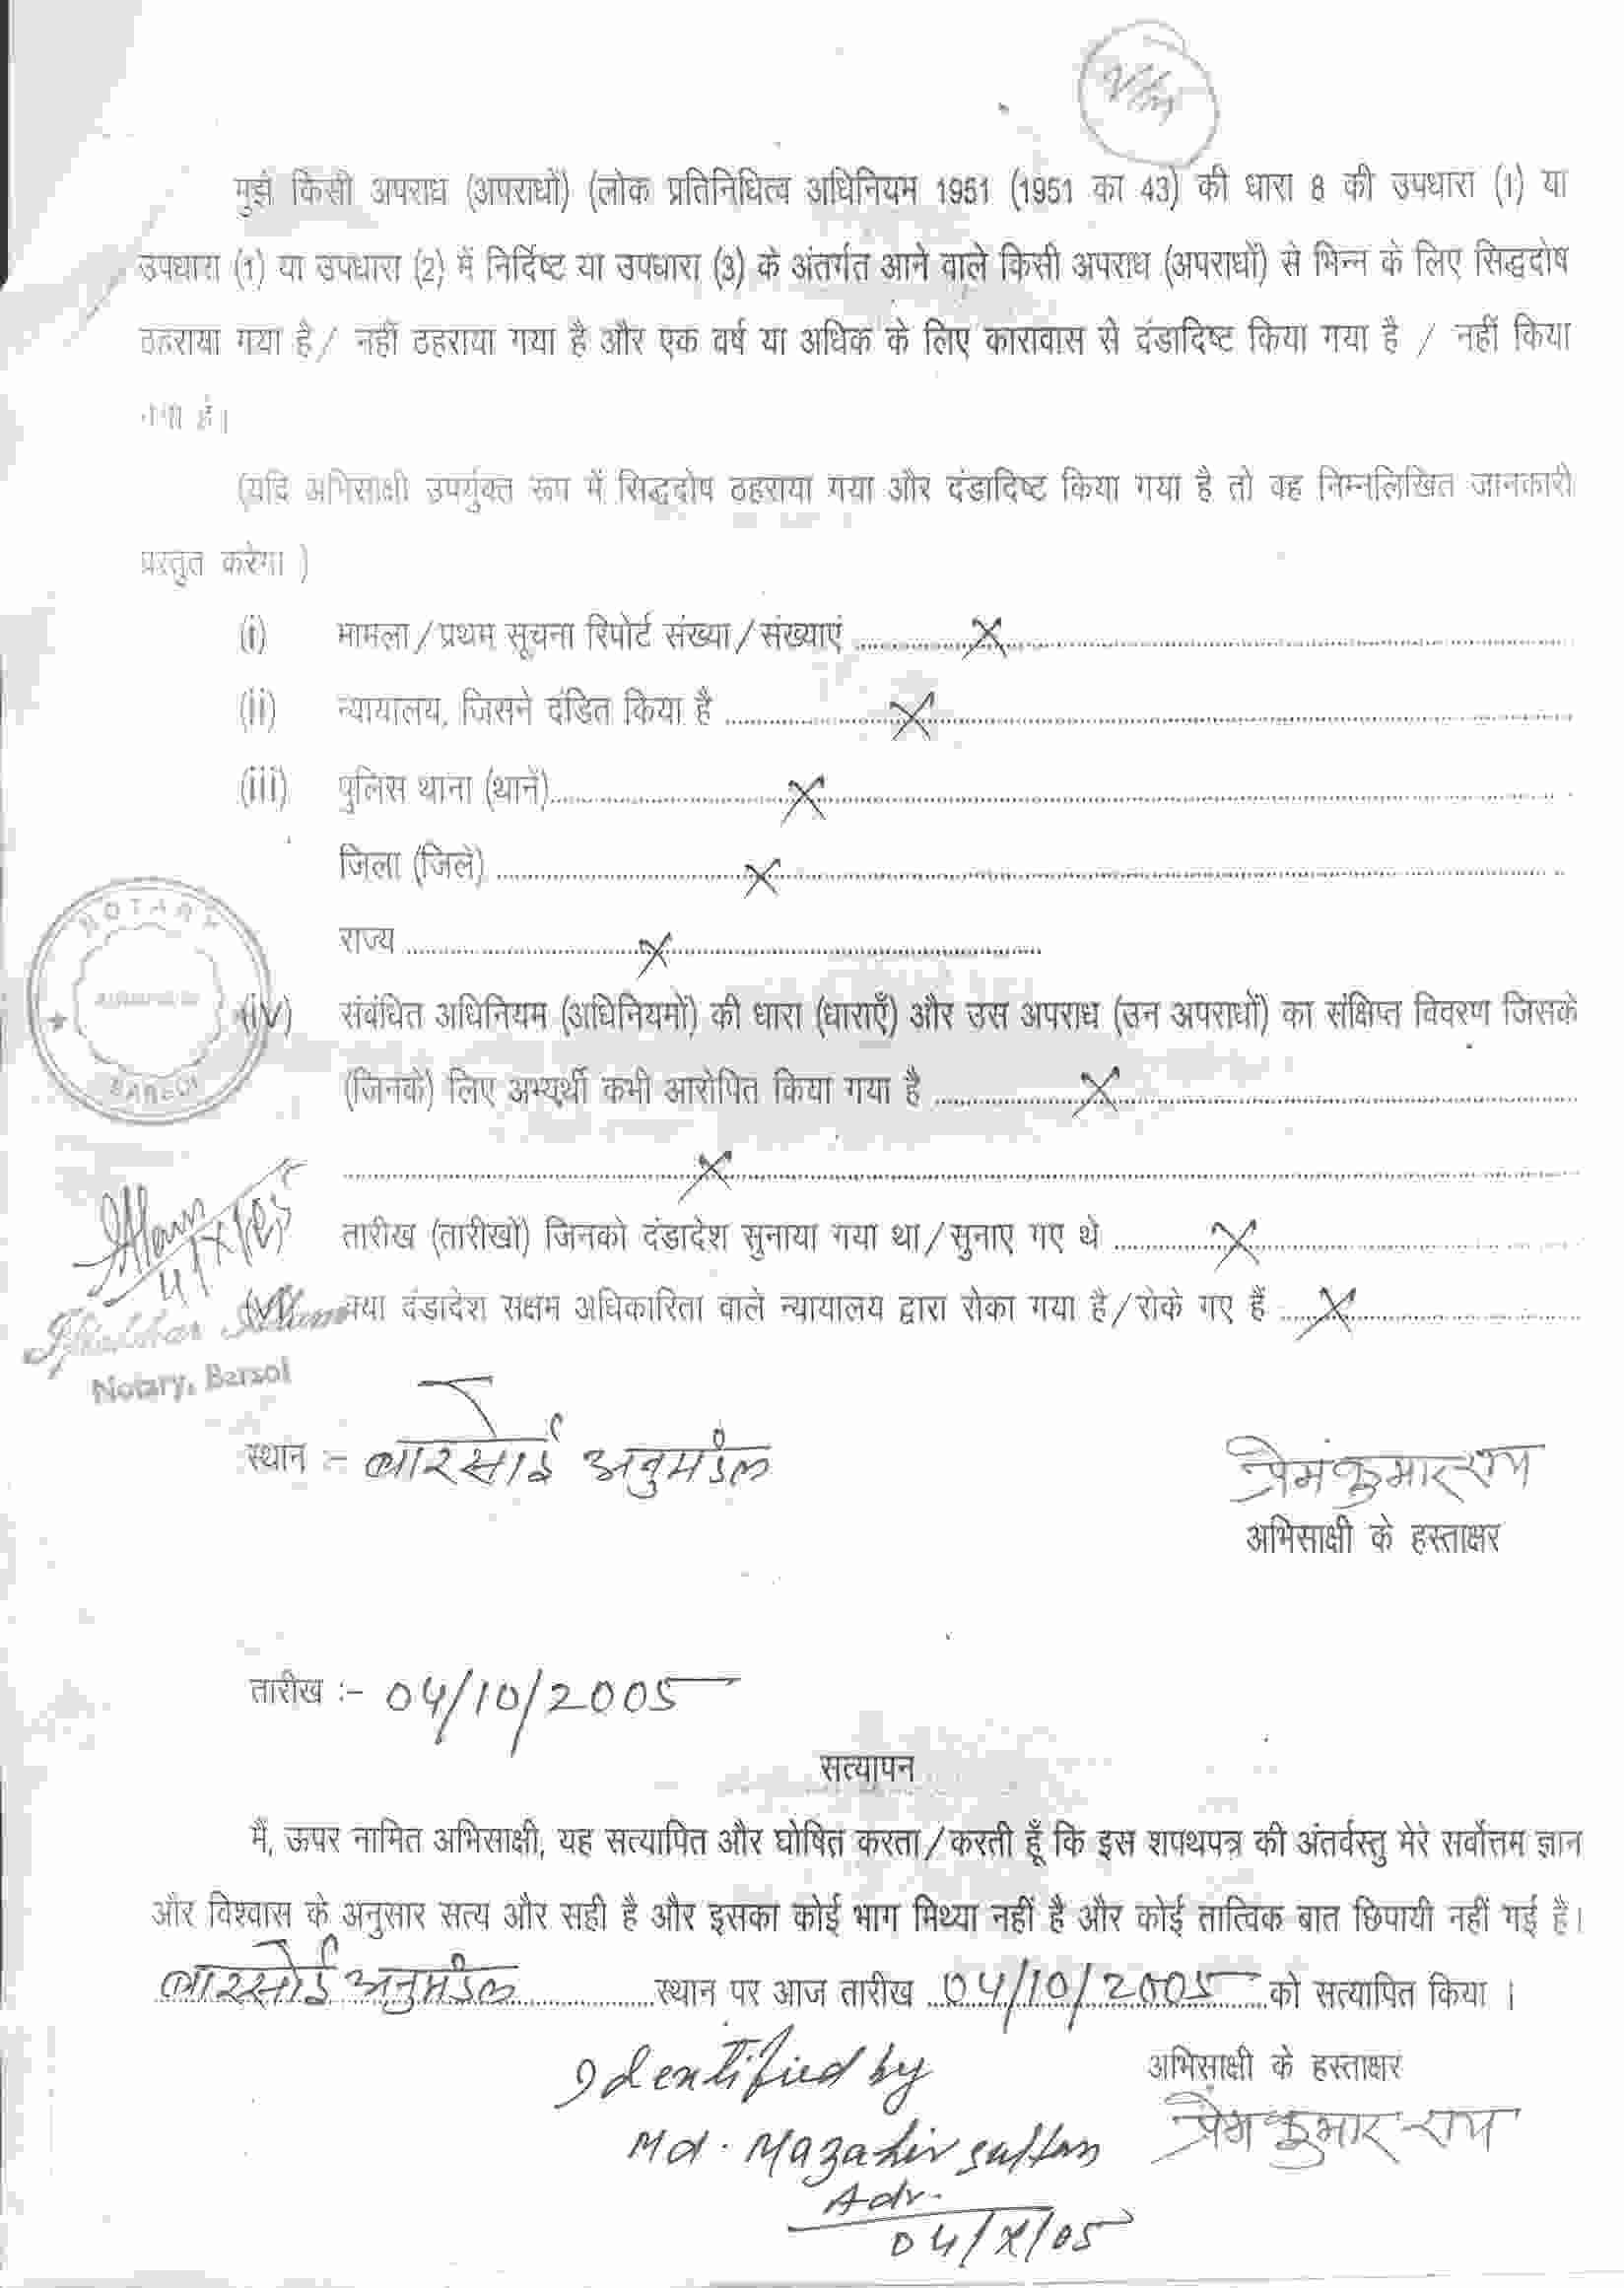 मुझे किसी अपराध (अपराधों) (लोक प्रतिनिधित्व अधिनियम 1951 (1951 का 43) की धारा 8 की उपधारा (1) या
उपधारा (1) या उपधारा (2) में निर्दिष्ट या उपधारा (3) के अंतर्गत आने वाले किसी अपराध (अपराधों) से भिन्न के लिए सिद्धदोष
ठहराया गया है / नहीं ठहराया गया है और एक वर्ष या अधिक के लिए कारावास से दंडादिष्ट किया गया है / नहीं किया
गया है।
(यदि अभिसाक्षी उपर्युक्त रूप में सिद्धदोष ठहराया गया और दंडादिष्ट किया गया है तो वह निम्नलिखित जानकारी
प्रस्तुत करेगा )
(i) मामला/प्रथम सूचना रिपोर्ट संख्या/संख्याएं ........ X ........
(ii) न्यायालय, जिसने दंडित किया है ........ X ........
(iii) पुलिस थाना (थानें) ........ X ........
जिला (जिले) ........ X ........
राज्य ........ X ........
NOTARY
BARSOI
(iv) संबंधित अधिनियम (अधिनियमों) की धारा (धाराएँ) और उस अपराध (उन अपराधों) का संक्षिप्त विवरण जिसके
(जिनके) लिए अभ्यर्थी कभी आरोपित किया गया है ........ X ........
........ X ........
तारीख (तारीखों) जिनको दंडादेश सुनाया गया था/सुनाए गए थे ........ X ........
क्या दंडादेश सक्षम अधिकारिता वाले न्यायालय द्वारा रोका गया है/रोके गए हैं ........ X ........
Notary, Barsoi
स्थान :- बारसोई अनुमंडल
प्रेम कुमार राय
अभिसाक्षी के हस्ताक्षर
तारीख :- 04/10/2005
सत्यापन
मैं, ऊपर नामित अभिसाक्षी, यह सत्यापित और घोषित करता/करती हूँ कि इस शपथपत्र की अंतर्वस्तु मेरे सर्वोत्तम ज्ञान
और विश्वास के अनुसार सत्य और सही है और इसका कोई भाग मिथ्या नहीं है और कोई तात्विक बात छिपायी नहीं गई है।
बारसोई अनुमंडल ........ स्थान पर आज तारीख 04/10/2005 को सत्यापित किया ।
अभिसाक्षी के हस्ताक्षर
प्रेम कुमार राय
Identified by
Md. Mazahir Sultan
Adv.
04/X/05